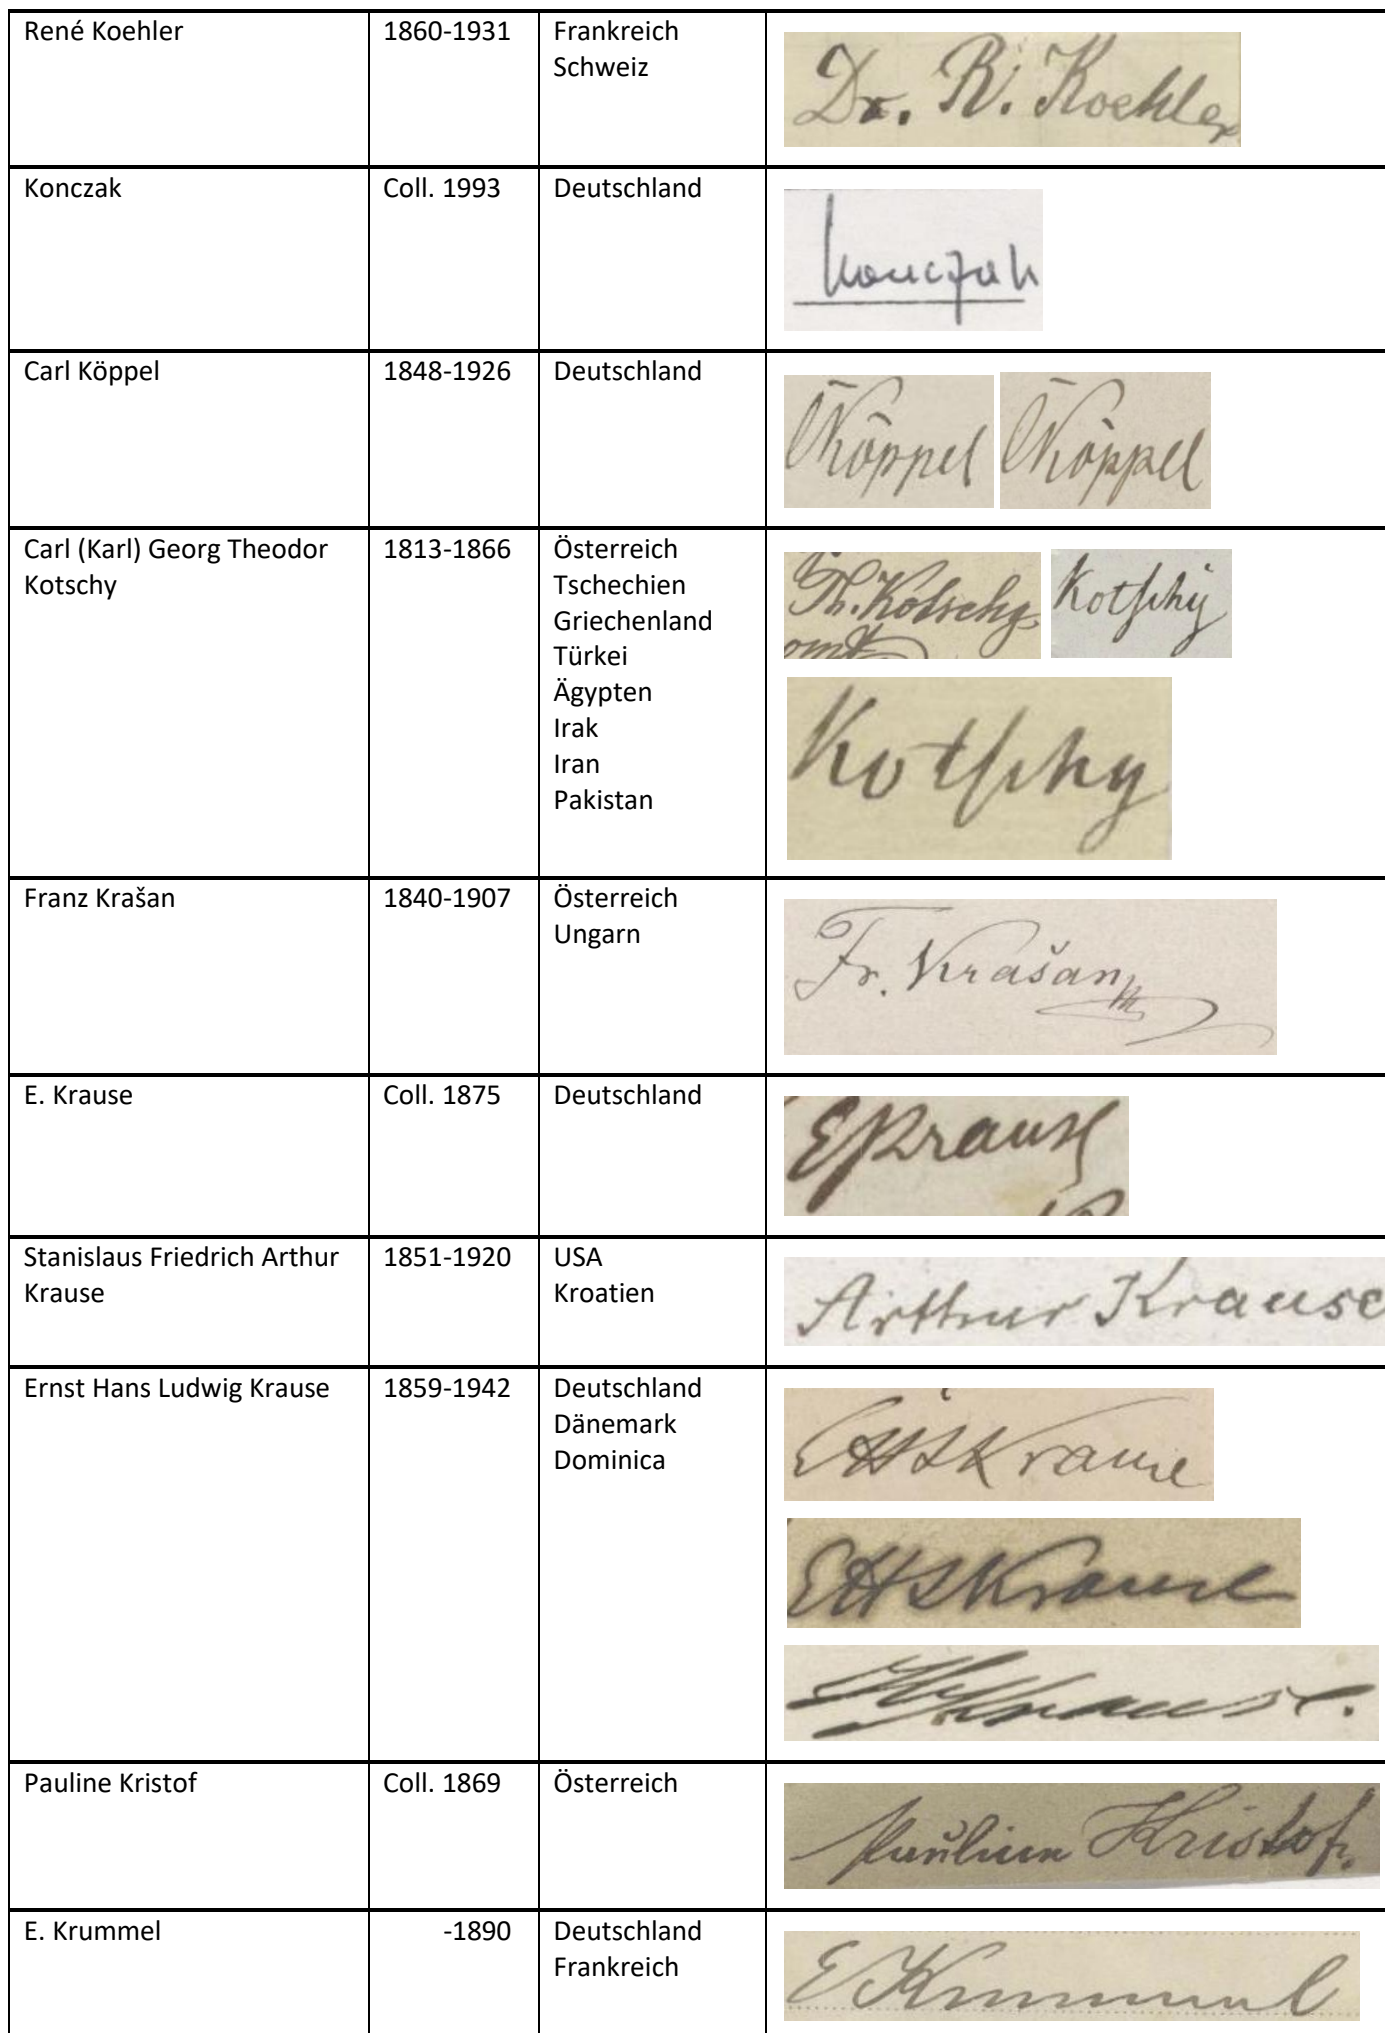 René Koehler 1860-1931 Frankreich
Schweiz
Dr. R. Koehler
Konczak Coll. 1993 Deutschland
Konczak
Carl Köppel 1848-1926 Deutschland
CKöppel CKöppel
Carl (Karl) Georg Theodor 1813-1866 Österreich
Kotschy Tschechien
Griechenland
Türkei
Ägypten
Irak
Iran
Pakistan
Th. Kotschy Kotschy
Kotschy
Franz Krašan 1840-1907 Österreich
Ungarn
Fr. Krašan
E. Krause Coll. 1875 Deutschland
EKrause
Stanislaus Friedrich Arthur 1851-1920 USA
Krause Kroatien
Arthur Krause
Ernst Hans Ludwig Krause 1859-1942 Deutschland
Dänemark
Dominica
EHLKrause
EHLKrause
Krause.
Pauline Kristof Coll. 1869 Österreich
Pauline Kristof.
E. Krummel -1890 Deutschland
Frankreich
E Krummel